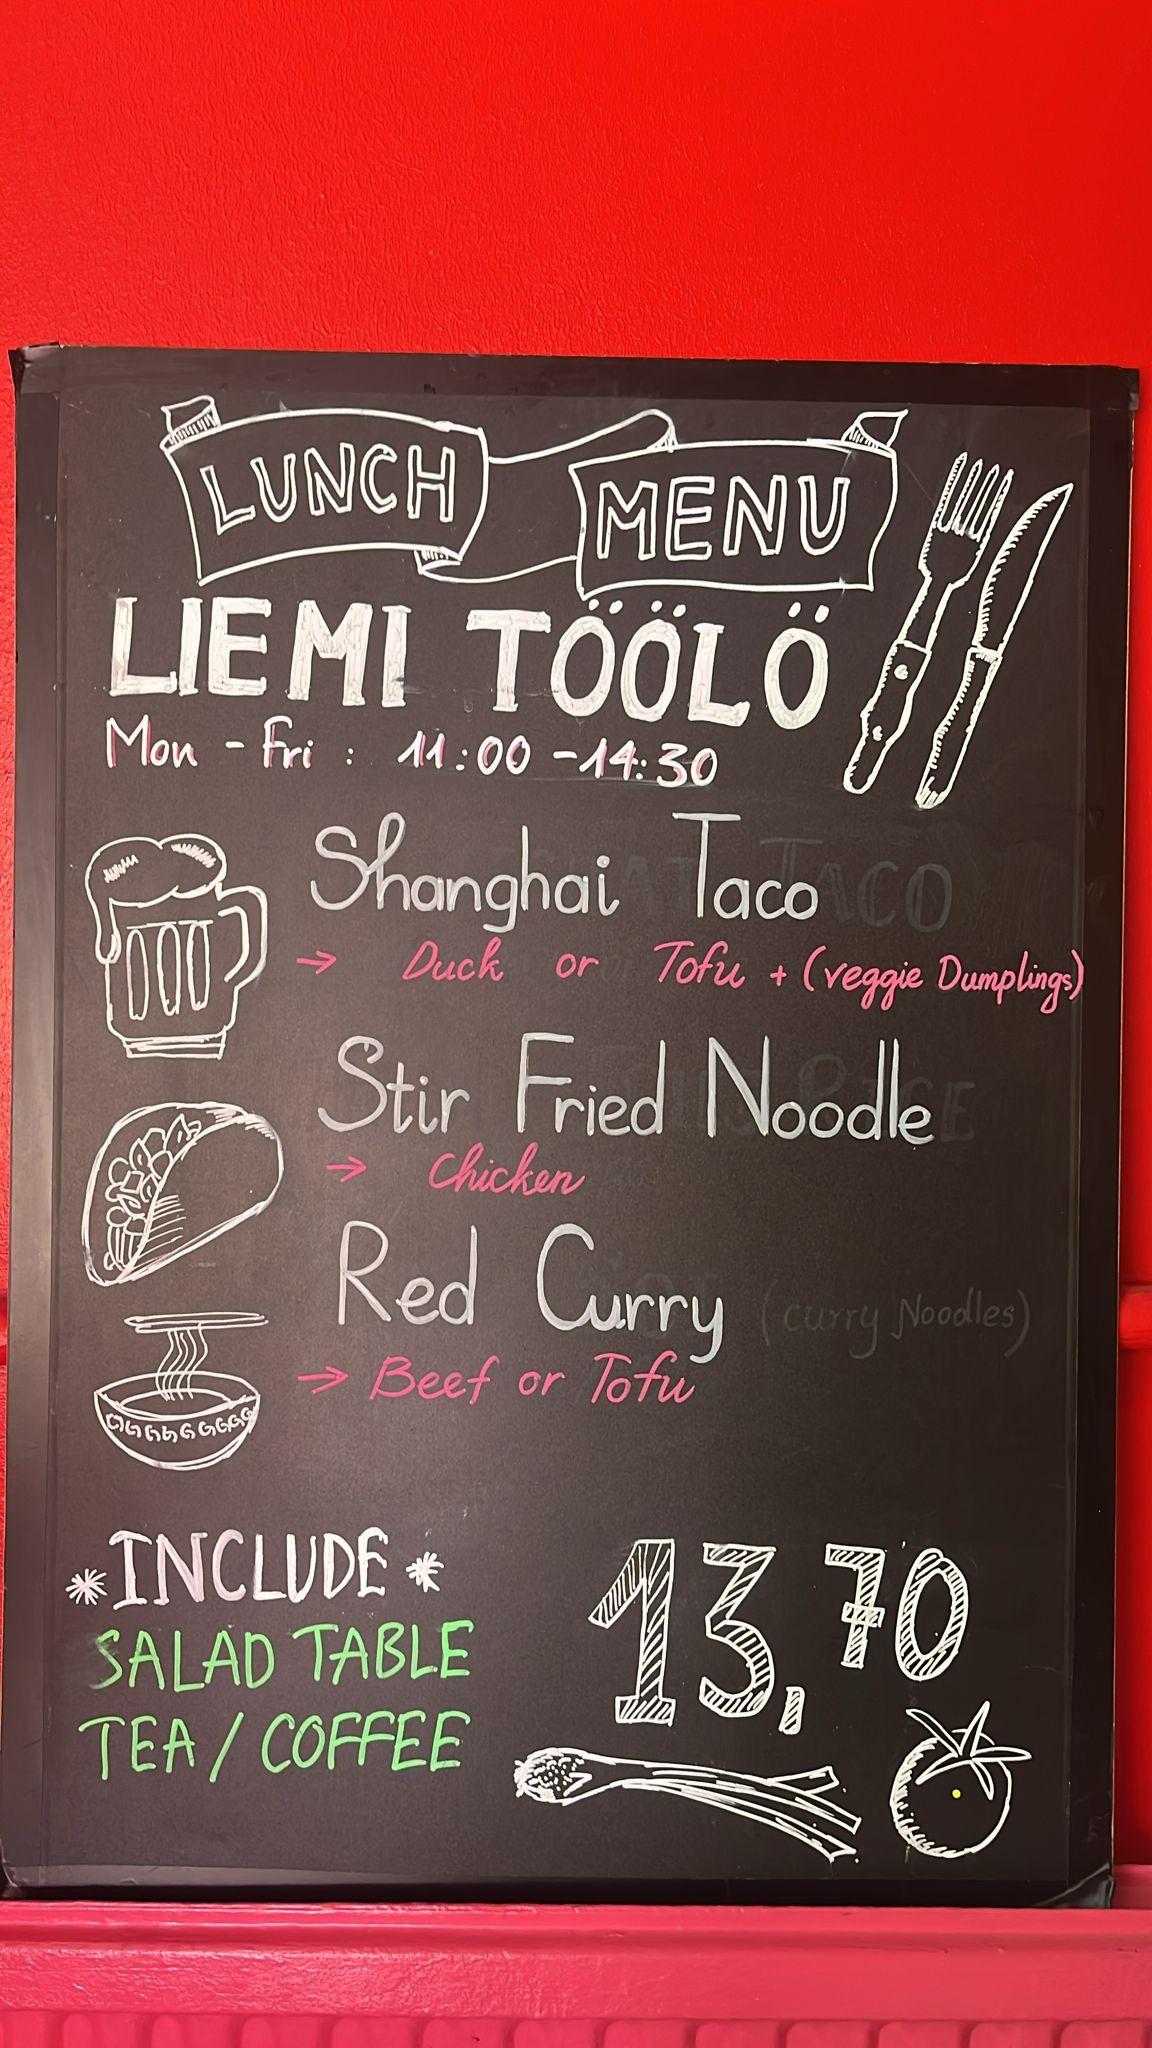 LUNCH MENU
LIEMI TÖÖLÖ
Mon - Fri : 11:00 - 14:30
Shanghai Taco
→ Duck or Tofu + (veggie Dumplings)
Stir Fried Noodle
→ Chicken
Red Curry (curry Noodles)
→ Beef or Tofu
* INCLUDE *
SALAD TABLE
TEA / COFFEE
13,70